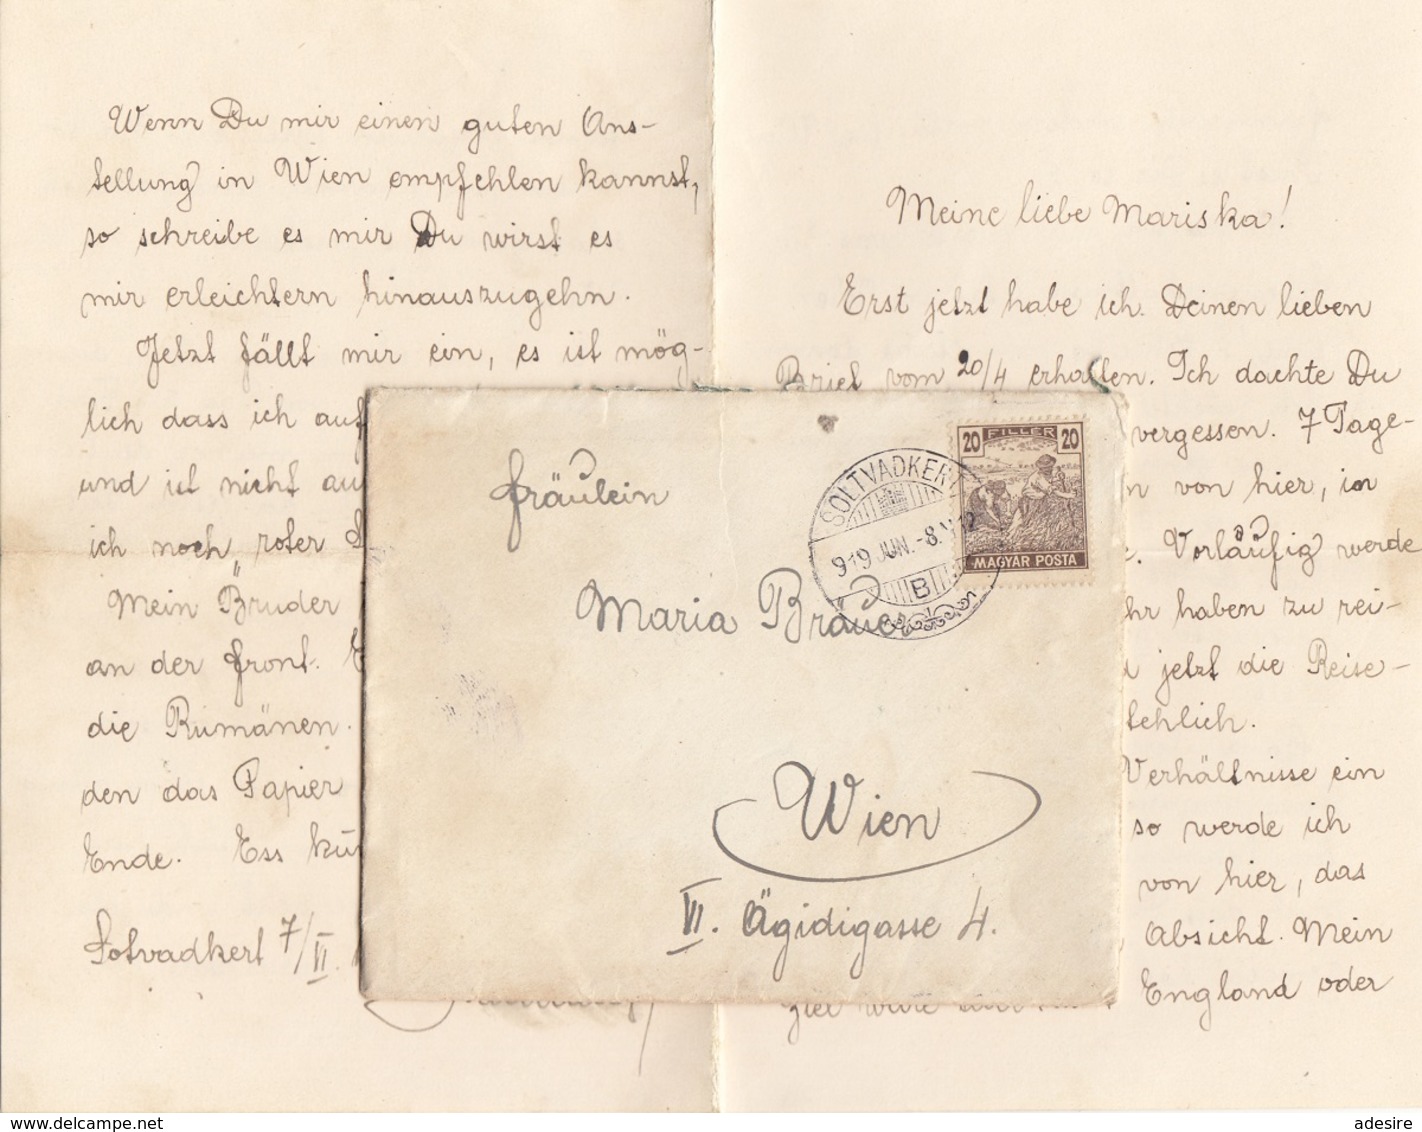 Wenn Du mir einen guten Ans-
tellung in Wien empfehlen kannst,
so schreibe es mir Du wirst es
mir erleichtern hinauszugehn.
Jetzt fällt mir ein, es ist mög-
lich dass ich auf
und ist nicht au
ich noch roter
Mein Bruder
an der Front.
die Rumänen.
den das Papier
Ende. Ess kü
Sotvadkert 7/VI.
Meine liebe Mariska!
Erst jetzt habe ich Deinen lieben
Brief vom 20/4 erhalten. Ich dachte Du
vergessen. 7 Tage-
n von hier, in
Vorläufig werde
hr haben zu rei-
jetzt die Reise-
tehlich.
Verhältnisse ein
so werde ich
von hier, das
Absicht. Mein
England oder
Fräulein
Maria Bräuer
Wien
VI. Ägidigasse 4.
20 FILLER 20
MAGYAR POSTA
SOLTVADKERT
919 JUN. -8.
B
www.delcampe.net
adesire